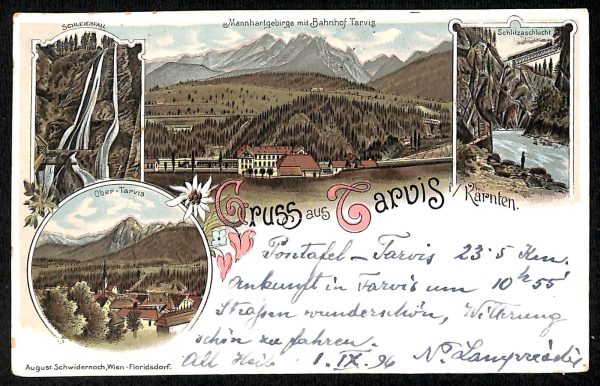 SCHLEIERFALL
Mannhartgebirge mit Bahnhof Tarvis
Schlitzaschlucht
Ober-Tarvis
Gruss aus Tarvis i/ Kärnten.
Pontafel – Tarvis 23·5 Km.
Ankunft in Tarvis um 10h 55'
Straßen wunderschön, Witterung
schön zu fahren.
All Heil 1. IX. 96 N.
August Schwidernoch, Wien-Floridsdorf.